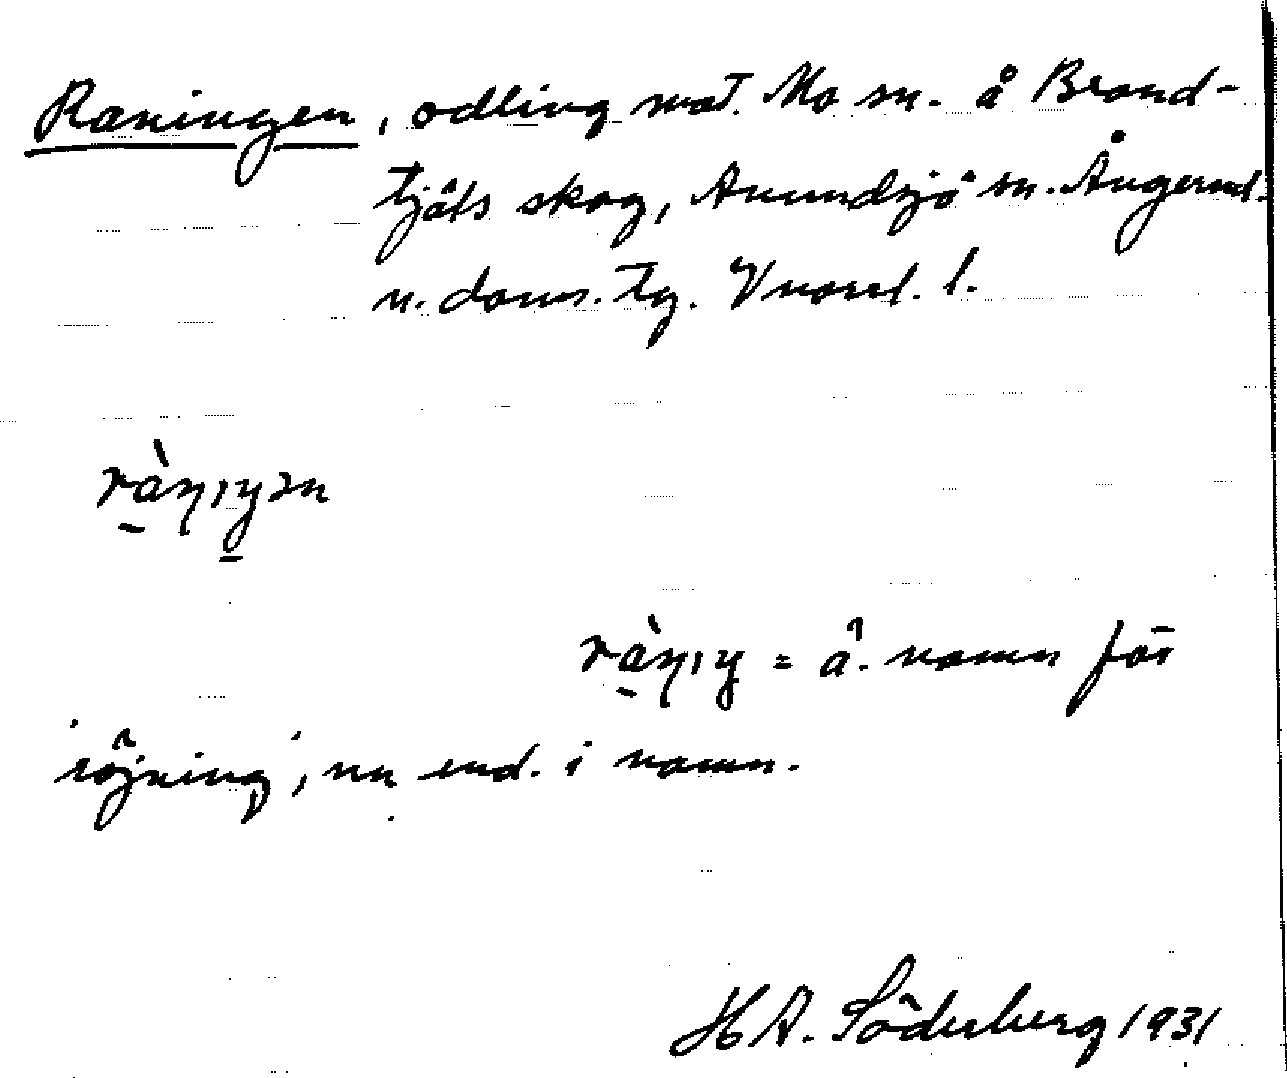 Raningen, odling mot. Mo sn. å Brand-
tjäls skog, Anundsjö sn. Ångerml.
n. doms. tg. V nord. l.
rànıŋən
rànıŋ = ä. namn för
'röjning', nu end. i namn.
H A. Söderberg 1931